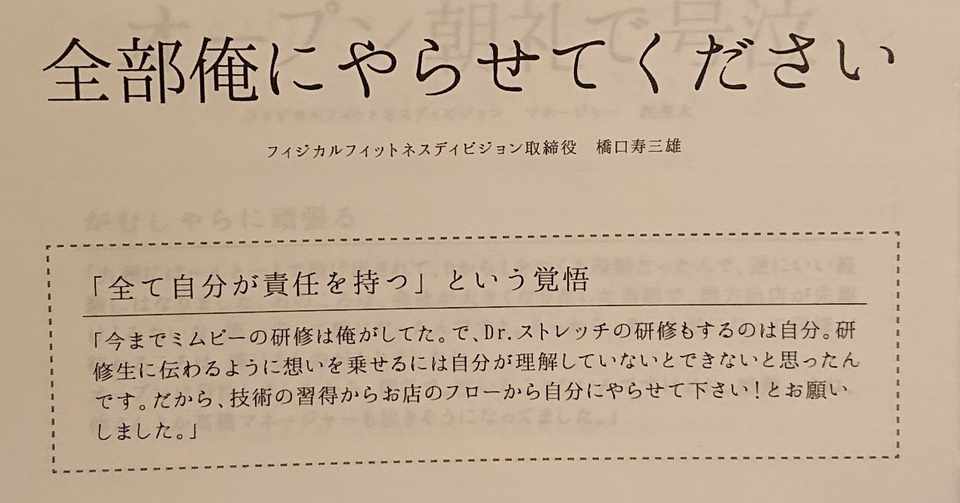 全部俺にやらせてください
フィジカルフィットネスディビジョン取締役　橋口寿三雄
「全て自分が責任を持つ」という覚悟
「今までミムビーの研修は俺がしてた。で、Dr.ストレッチの研修もするのは自分。研
修生に伝わるように想いを乗せるには自分が理解していないとできないと思ったん
です。だから、技術の習得からお店のフローから自分にやらせて下さい！とお願い
しました。」